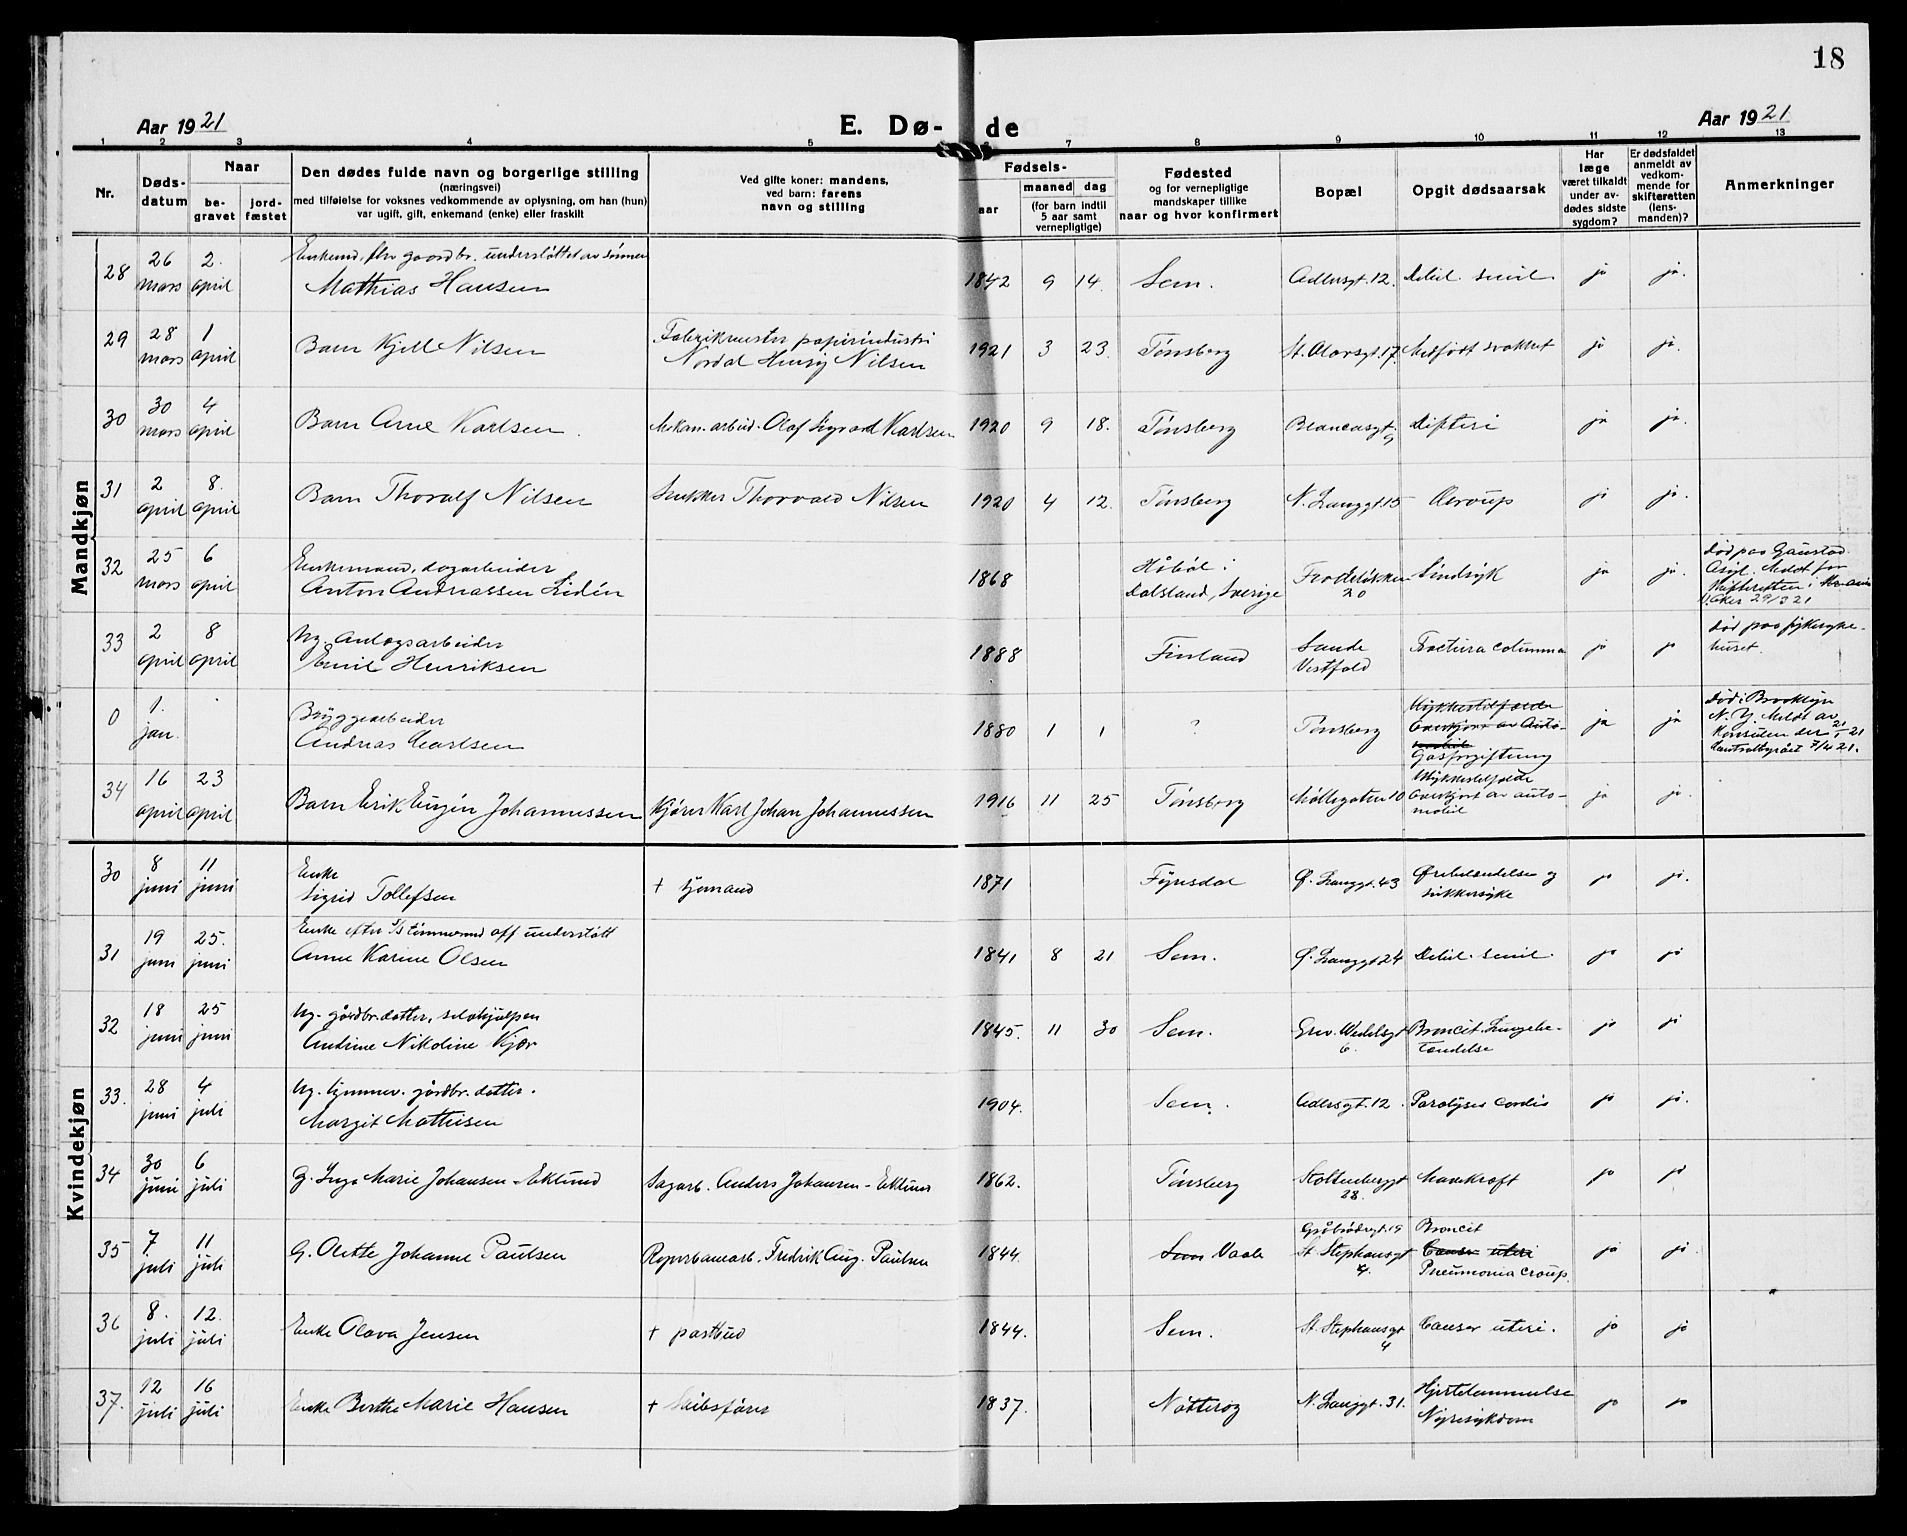 18
Aar 1921
E. Dø-de
Aar 1921
1 2 3 4 5 7 8 9 10 11 12 13
Nr.
Døds-
datum
Naar
be-
gravet
jord-
fæstet
Den dødes fulde navn og borgerlige stilling
(næringsvei)
med tilføielse for voksnes vedkommende av oplysning, om han (hun)
var ugift, gift, enkemand (enke) eller fraskilt
Ved gifte koner: mandens,
ved barn: farens
navn og stilling
Fødsels-
aar
maaned
dag
(for barn indtil
5 aar samt
vernepligtige)
Fødested
og for vernepligtige
mandskaper tillike
naar og hvor konfirmert
Bopæl
Opgit dødsaarsak
Har
læge
været tilkaldt
under av-
dødes sidste
sygdom?
Er dødsfaldet
anmeldt av
vedkom-
mende for
skifteretten
(lens-
manden)?
Anmerkninger
Mandkjøn
28 26 mars 2. april
Enkemd, fhv gaardbr. understøttet av sønner
Mathias Hansen
1842 9 14. Sem. 12. Debil. senil ja ja.
29 28 mars 1 april
Barn Kjell Nilsen
Fabrikmester papirindustri
Nordal Nilsen
1921 3 23. Tønsberg St. Olavsgt. 17. Medfødt svakhet ja ja.
30 30 mars 4 april
Barn Arne Karlsen.
Mekan. arbeid. Olaf Sigvard Karlsen
1920 9 18. Tønsberg Blancasgt. 9 Difteri ja ja.
31 2 april 8. april
Barn Thoralf Nilsen
Snekker Thorvald Nilsen
1920 4 12. Tønsberg N. Langgt. 15 ja ja.
32 25 mars 6 april
Enkemand, dagarbeider
Anton Andreassen Lidén
1868 Håbøl i
Dalsland, Sverige
20
Sindsyk ja ja.
død paa Gaustad
Asyl. Meldt for
skifteretten i
Aker 29/3 21
33 2 april 8 april
Ug. Anlægsarbeider
Emil Henriksen
1888 Finland
Sande
Vestfold
Fractura columna ja ja
død paa sykehuset.
0 1. jan.
Bryggearbeider
Andreas Carlsen
1880 1 1 ? Tønsberg
Ulykkestilfælde
Overkjørt av Auto-
mobil
Gasforgiftning
ja ja
død i Brooklyn
N. Y. Meldt av
Konsulen der 21/1 21
Centralbyrået 7/4 21.
34 16 april 23 april
Barn Erik Eugén Johannessen
Kjører Karl Johan Johannessen
1916 11 25 Tønsberg Møllegaten 10
Ulykkestilfælde
Overkjørt av auto-
mobil
ja ja.
Kvindekjøn
30 8 juni 11 juni
Enke
Sigrid Tollefsen
+ sjømand
1871 Fyresdal Ø. Langgt. 43
Ørebetændelse og
sukkersyke
ja ja.
31 19 juni 25. juni
Enke efter s/s tømmermd off understøtt
Anne Karine Olsen
1841 8 21 Sem. Ø. Langgt 24 Debil. senil. ja ja
32 18 juni 25 juni
Ug. gårdbr. datter, selvhjulpen
Andrine Nikoline Kjær
1845. 11 30 Sem.
Grev. Wedelsgt
6.
Broncit. Lungebe-
tændelse
ja ja
33. 28 juni 4 juli
Ug. gårdbr. datter.
Margit Mathisen
1904. Sem. 12. Paralyses cordis ja ja.
34 30 juni 6 juli
G. Inga Marie Johansen-Eklund
Sagarb. Anders Johansen-Eklund
1862. Tønsberg
Stoltenberggt
28.
Mavekræft ja ja
35 7 juli 11 juli
G. Olette Johanne Paulsen
Reperbanearb. Fredrik Aug. Paulsen
1844. Sem Vaale
Gråbrødregt. 19
St. Stephansgt
4.
Broncit
Cancer uteri
Pneumonia croup.
ja ja.
36 8. juli 12. juli
Enke Olava Jensen
+ postbud
1844. Sem.
St. Stephansgt
4
Cancer uteri. ja ja
37. 12 juli 16 juli
Enke Berthe Marie Hansen
+ Skibsfører
1837. Nøtterøy N. Langgt. 31.
Hjertelammelse
Nyresykdom
ja ja